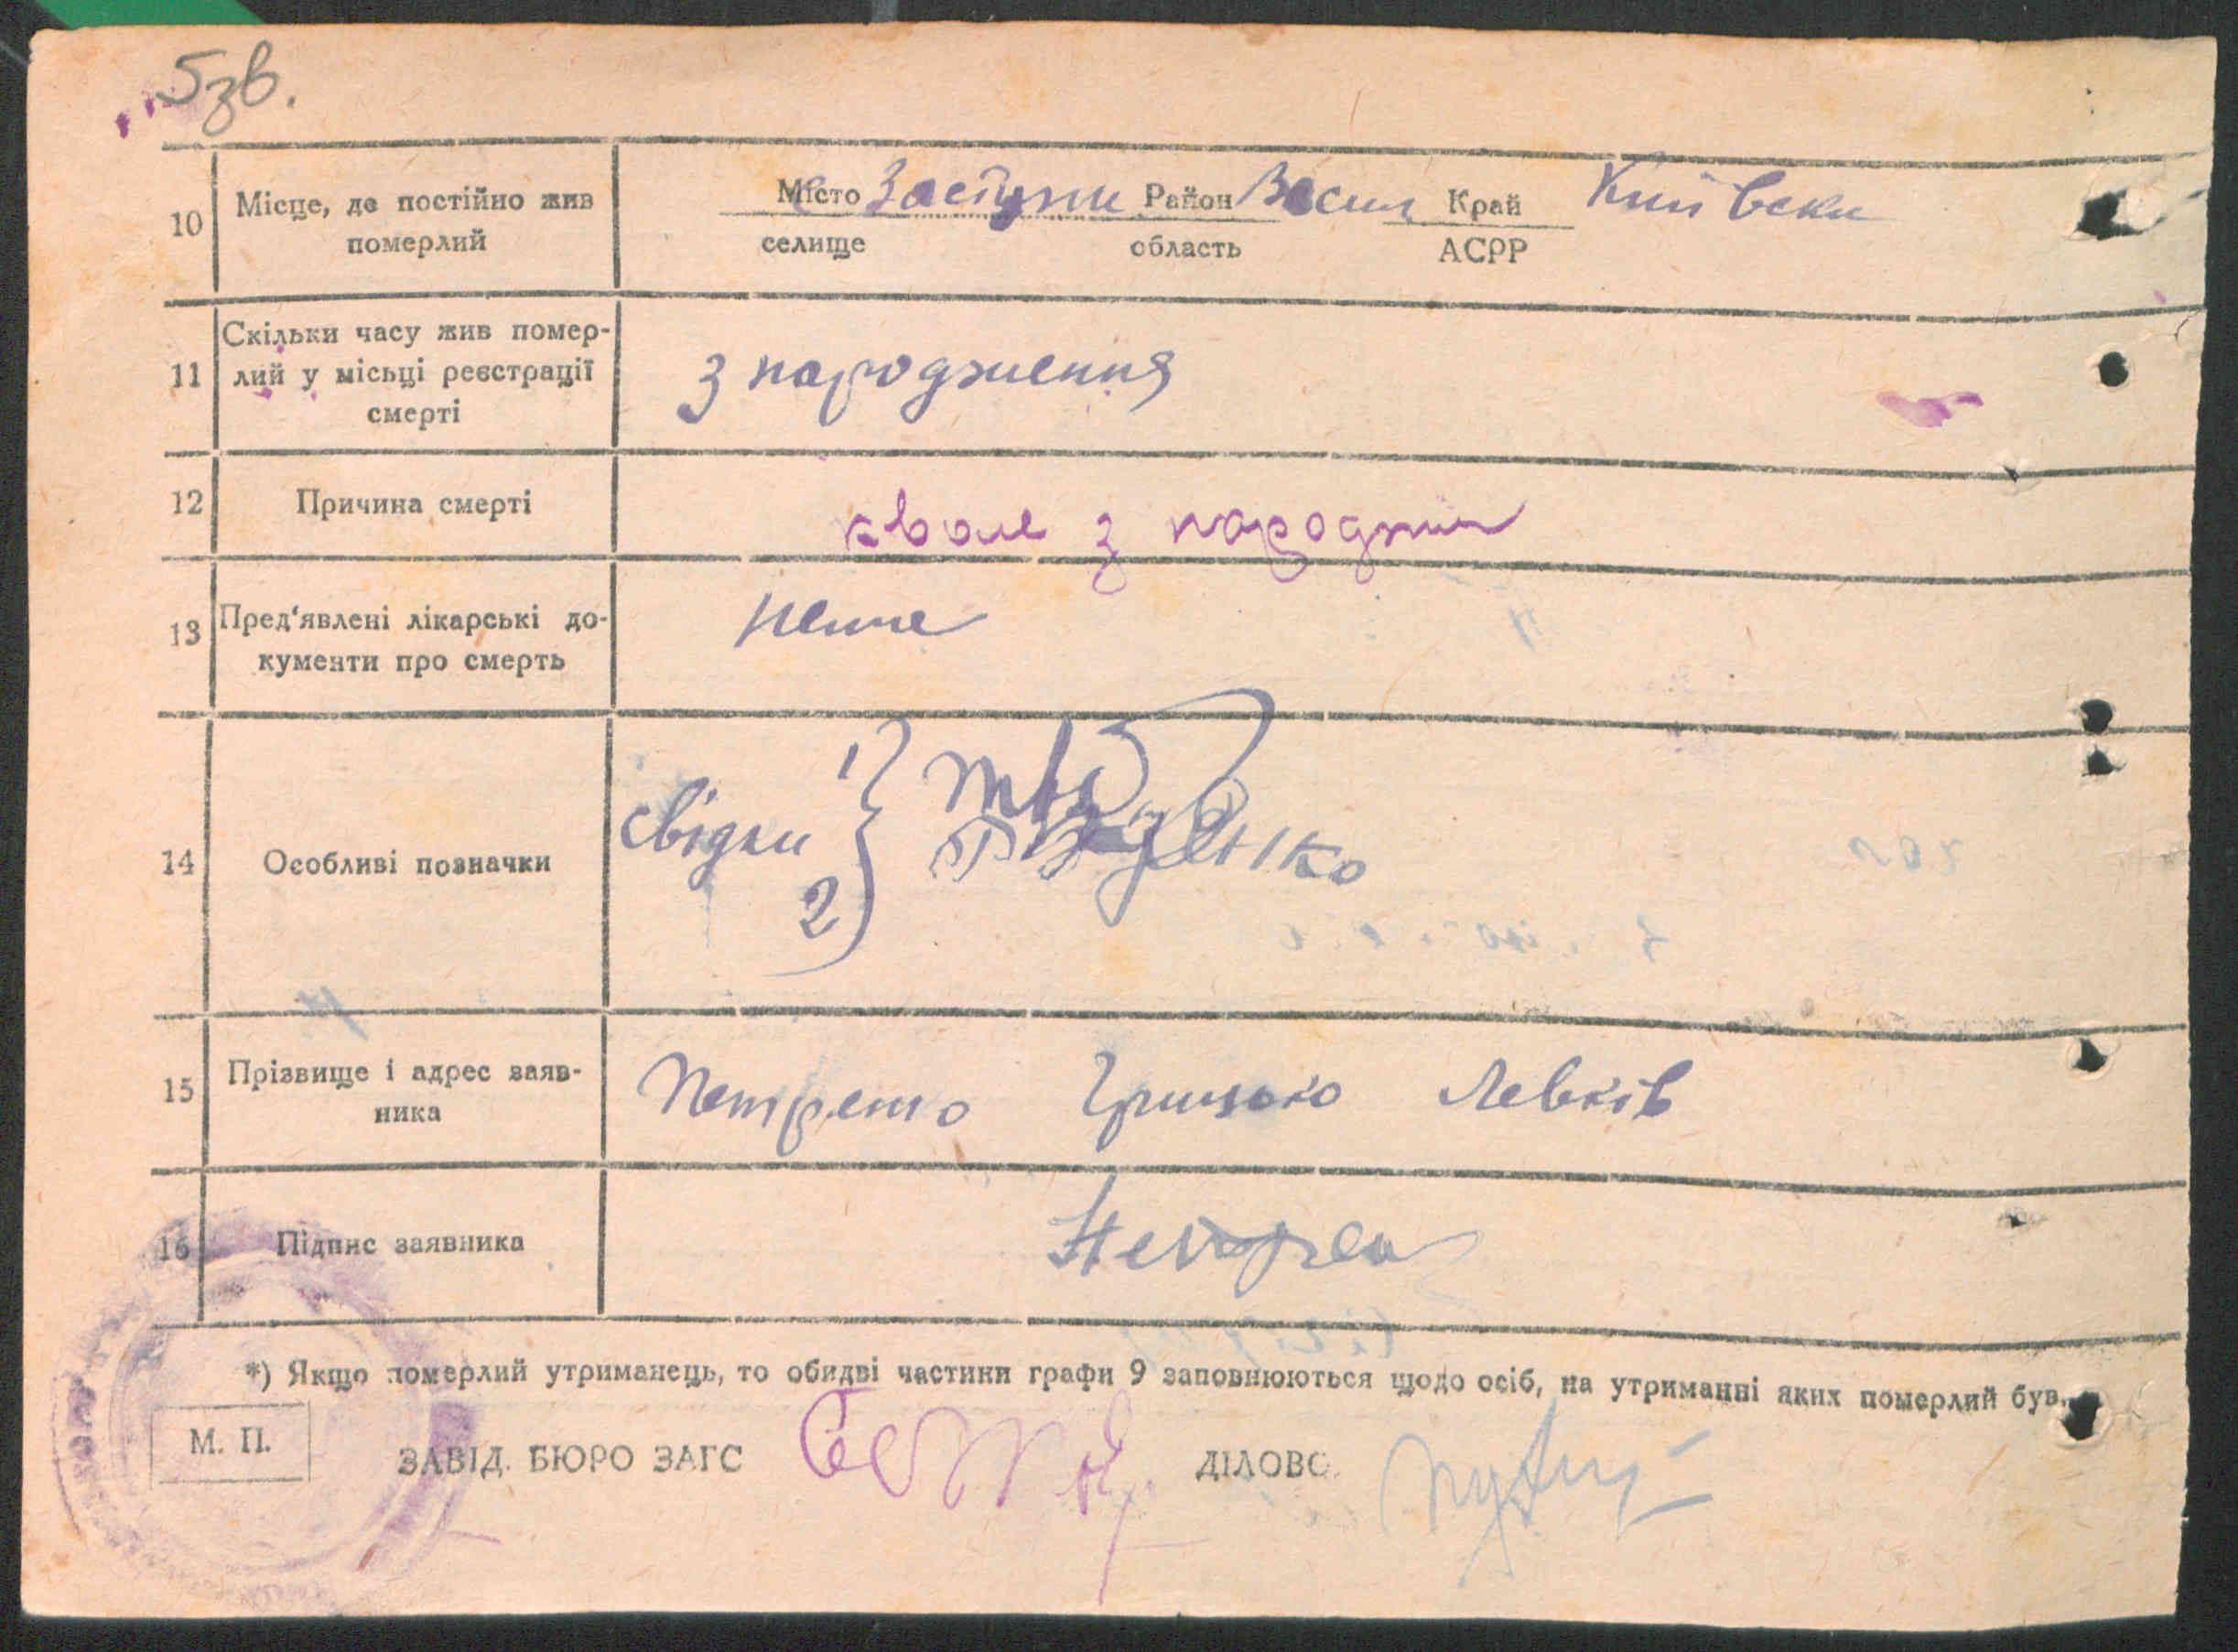 5зв.
10 Місце, де постійно жив померлий
Місто Район Васил Край Київськ
селище область АСРР
11 Скільки часу жив помер-
лий у місьці реєстрації
смерті
з народження
12 Причина смерті
кволе з народжин
13 Пред'явлені лікарські до-
кументи про смерть
нема
14 Особливі позначки
свідки 1)
2
15 Прізвище і адрес заяв-
ника
Петренко Грицько Левків
16 Підпис заявника
*) Якщо померлий утриманець, то обидві частини графи 9 заповнюються щодо осіб, на утриманні яких померлий був.
М. П.
ЗАВІД. БЮРО ЗАГС ДІЛОВС.